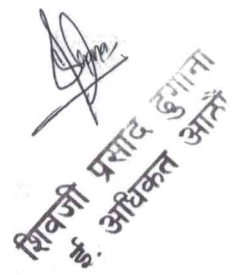 शिवजी प्रसाद ढुगाना
ई. अधिकत आठौं